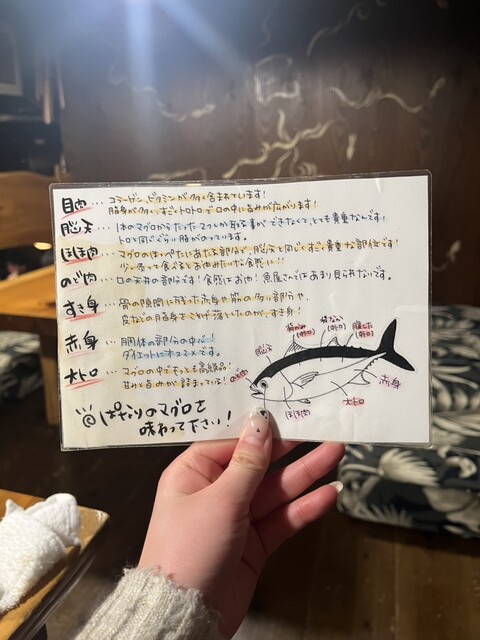 目肉…コラーゲン、ビタミンが多く含まれています！
脂身が多く、すごくトロトロで口の中に旨みが広がります！
脳天…1本のマグロからたった2カンしか取る事ができなくて、とても貴重なんです！
トロと同じぐらい脂がのっています。
ほほ肉…マグロのほっぺたにあたる部分で、脳天と同じくすごく貴重な部位です！
少し食べるとお肉みたいな食感に!!
のど肉…口の天井の部分です！食感はお肉！魚屋さんではあまり見られないです。
すき身…骨の隙間に残った赤身や筋の多い部分や、
皮などの脂身をこそげ落としたのが、すき身！
赤身…胴体の部分の中心！
ダイエットにオススメです。
大トロ…マグロの中でもっとも高級品！
甘みと旨みが詰まっている！
ぱなりのマグロを
味わって下さい！
脳天
背かみ
(中トロ)
背なか
(中トロ)
腹しも
(中トロ)
赤身
大トロ
ほほ肉
のど肉